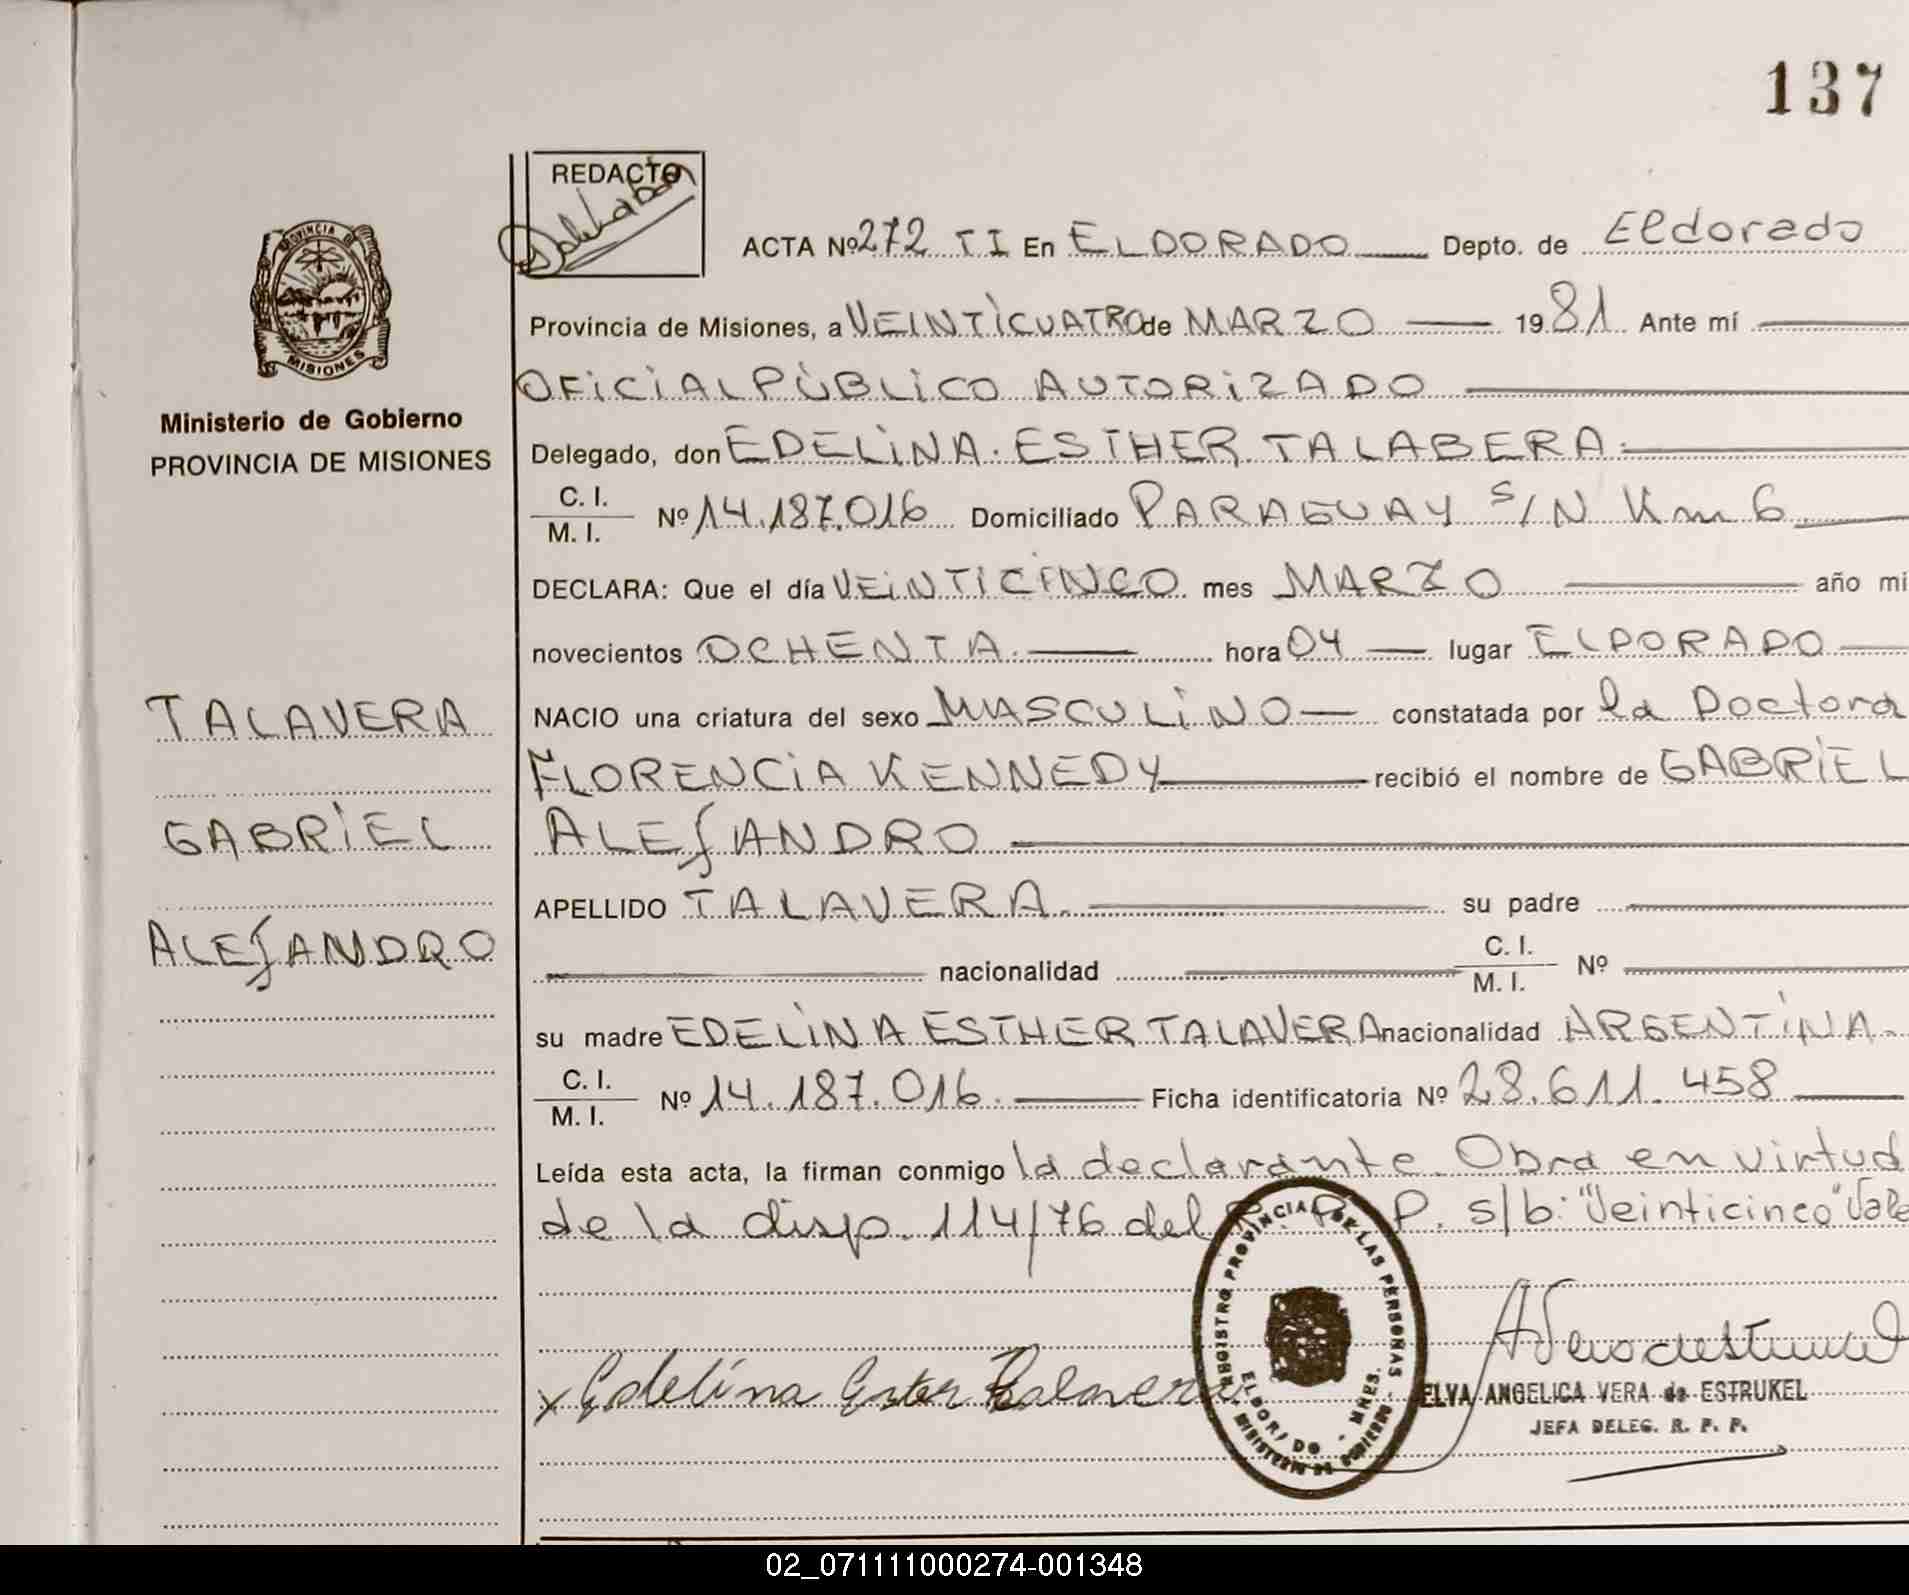 137
REDACTO
PROVINCIA DE
MISIONES
Ministerio de Gobierno
PROVINCIA DE MISIONES
ACTA Nº 272 TI En ELDORADO Depto. de Eldorado
Provincia de Misiones, a VEINTICUATRO de MARZO 1981 Ante mí
OFICIAL PÚBLICO AUTORIZADO
Delegado, don EDELINA ESTHER TALABERA
C. I.
M. I. Nº 14.187.016 Domiciliado PARAGUAY S/N Km 6
DECLARA: Que el día VEINTICINCO mes MARZO año mi
novecientos OCHENTA hora 04 lugar ELDORADO
TALAVERA
NACIO una criatura del sexo MASCULINO constatada por la Doctora
FLORENCIA KENNEDY recibió el nombre de GABRIEL
GABRIEL
ALEJANDRO
APELLIDO TALAVERA su padre
ALEJANDRO
nacionalidad C. I.
M. I. Nº
su madre EDELINA ESTHER TALAVERA nacionalidad ARGENTINA
C. I.
M. I. Nº 14.187.016 Ficha identificatoria Nº 28.611.458
Leída esta acta, la firman conmigo la declarante. Obra en virtud
de la disp. 114/76 del R. P. P. s/b: "Veinticinco" Vale
REGISTRO PROVINCIAL DE LAS PERSONAS
ELDORADO - MNES.
MINISTERIO DE GOBIERNO
x Edelina Ester Talavera
ELVA ANGELICA VERA de ESTRUKEL
JEFA DELEG. R. P. P.
02_071111000274-001348